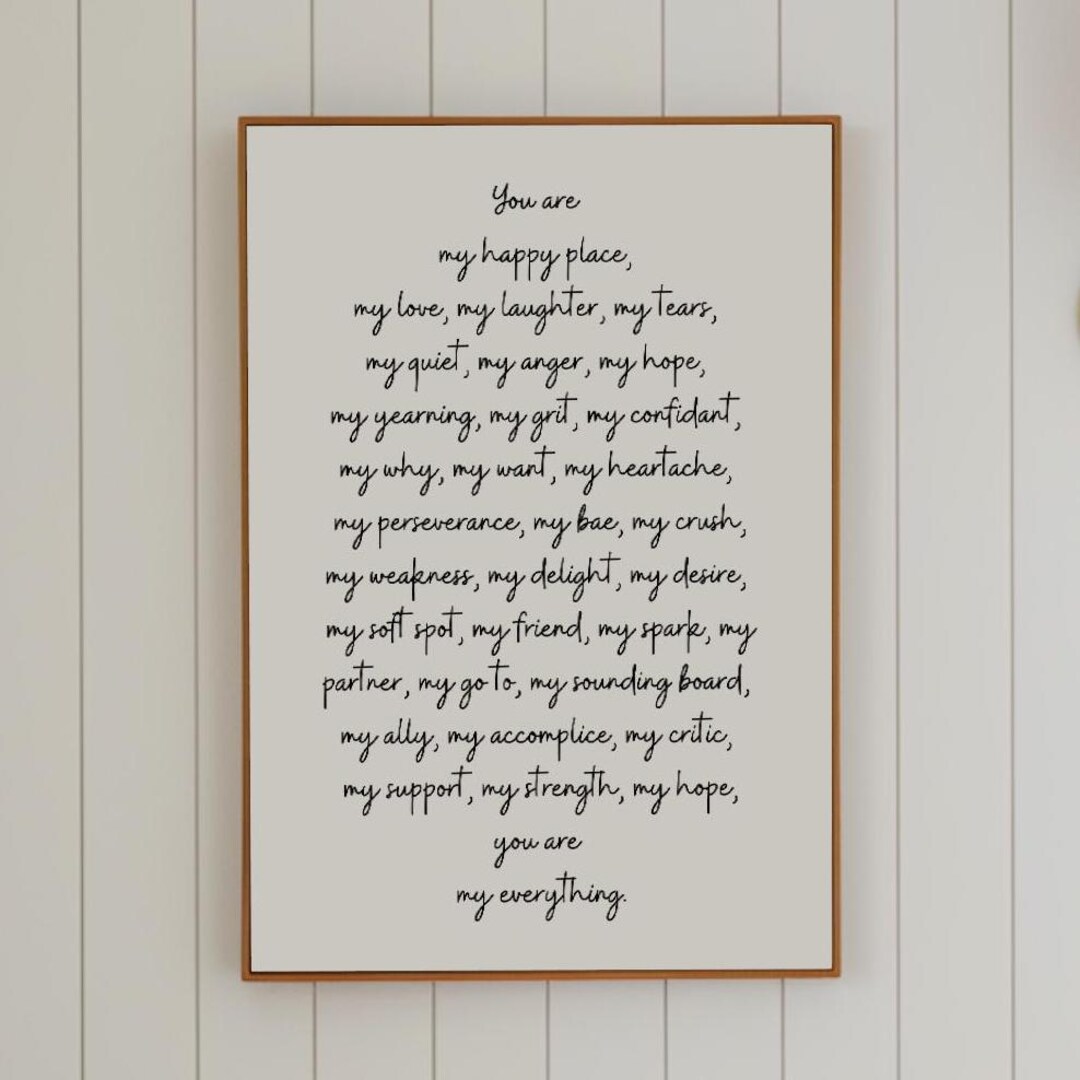 You are
my happy place,
my love, my laughter, my tears,
my quiet, my anger, my hope,
my yearning, my grit, my confidant,
my why, my want, my heartache,
my perseverance, my bae, my crush,
my weakness, my delight, my desire,
my soft spot, my friend, my spark, my
partner, my go to, my sounding board,
my ally, my accomplice, my critic,
my support, my strength, my hope,
you are
my everything.